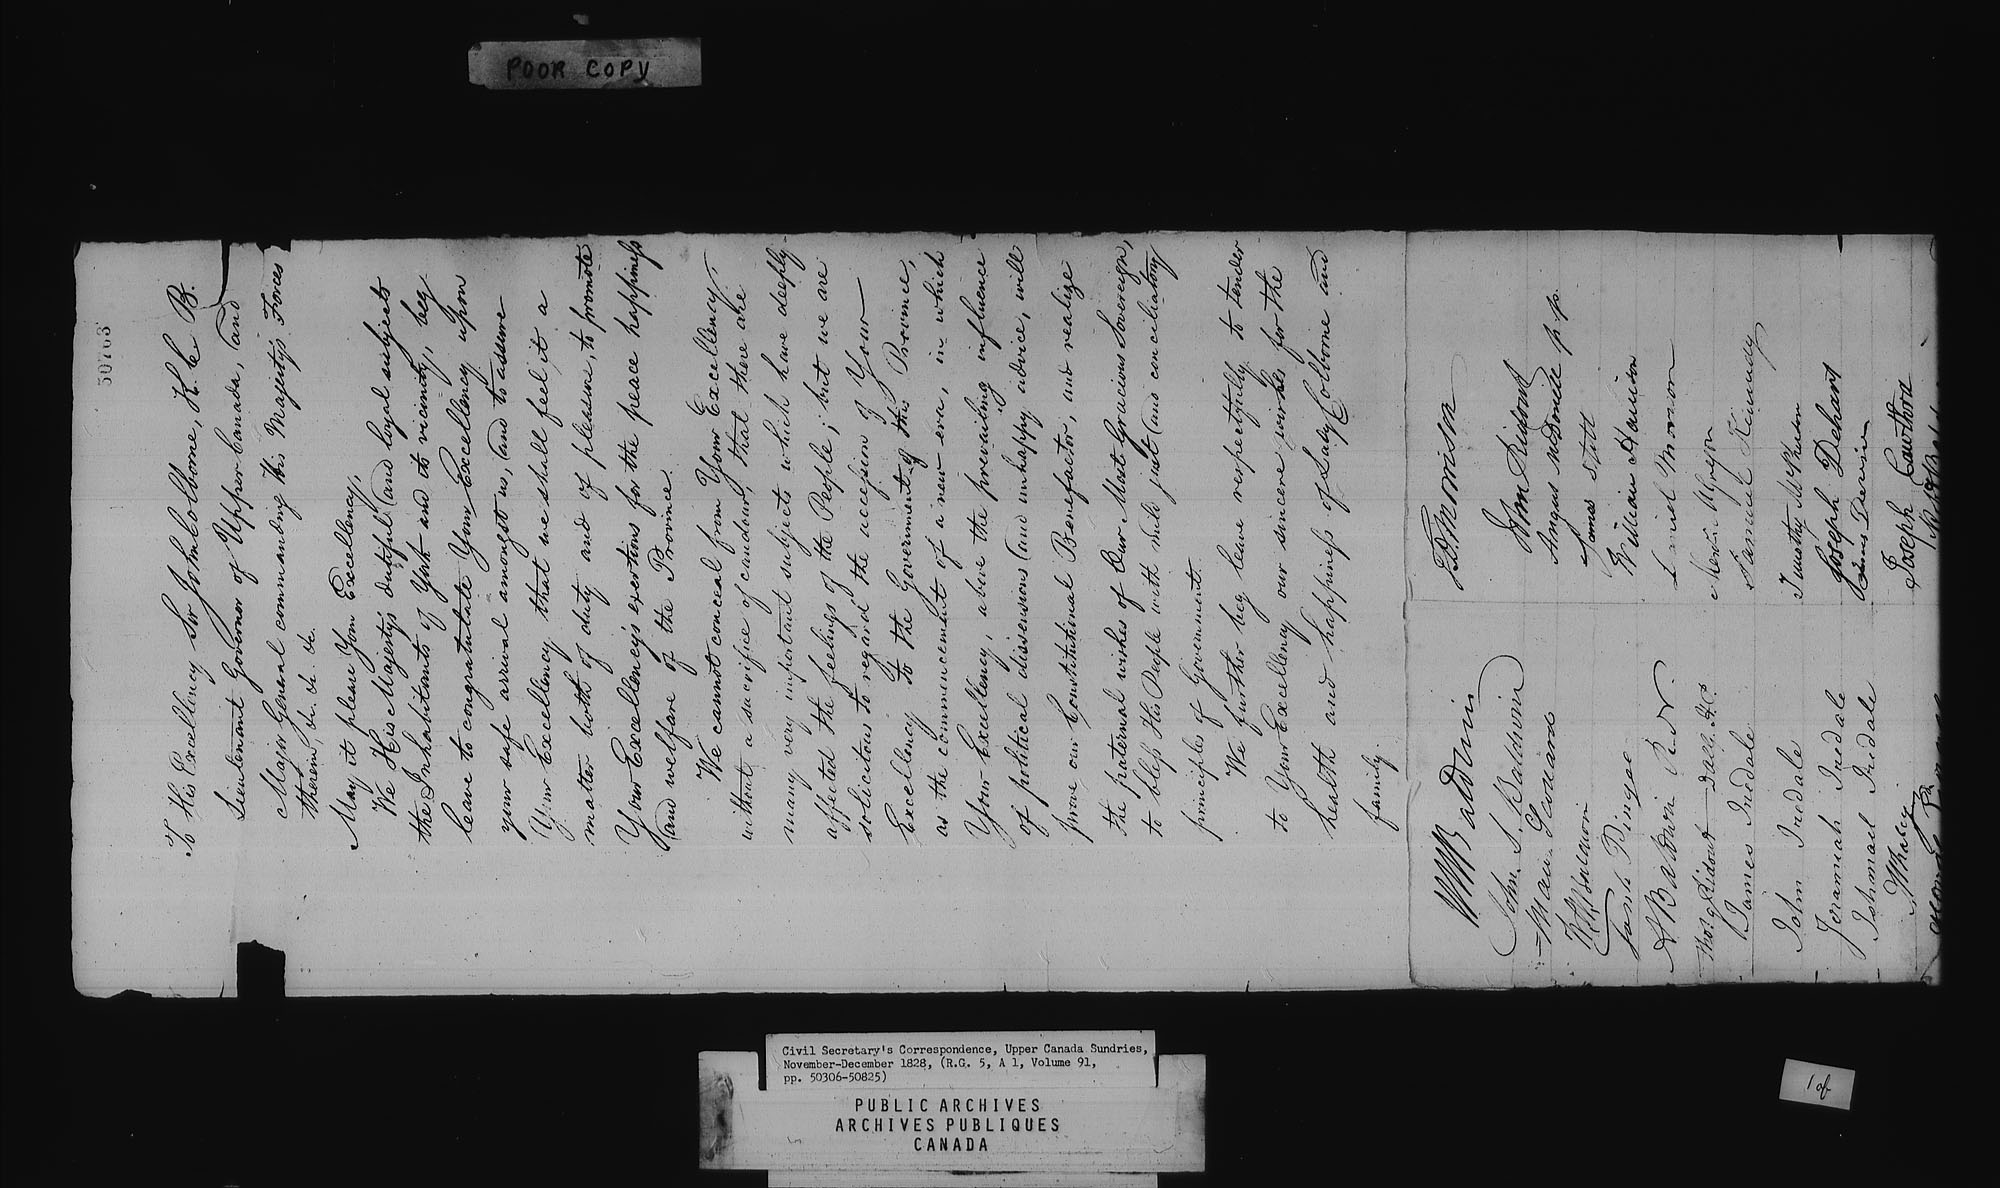 POOR COPY
50763
To His Excellency Sir John Colborne, K. C. B.
Lieutenant Governor of Upper Canada, and
Major General commanding His Majesty's Forces
therein, &c. &c. &c.
May it please Your Excellency,
We His Majesty's dutiful and loyal subjects
the Inhabitants of York and its vicinity, beg
leave to congratulate Your Excellency upon
your safe arrival amongst us, and to assure
Your Excellency that we shall feel it a
matter both of duty and of pleasure, to promote
Your Excellency's exertions for the peace happiness
and welfare of the Province.
We cannot conceal from Your Excellency,
without a sacrifice of candour, that there are
many very important subjects which have deeply
affected the feelings of the People; but we are
solicitous to regard the accession of Your
Excellency to the Government of this Province,
as the commencement of a new era, in which
Your Excellency, above the prevailing influence
of political dissensions and unhappy advice, will
prove our Constitutional Benefactor, and realize
the paternal wishes of Our Most Gracious Sovereign,
to bless His People with mild just and conciliatory
principles of Government.
We further beg leave respectfully to tender
to Your Excellency our sincere wishes for the
health and happiness of Lady Colborne and
family.
WW Baldwin
John S. Baldwin
Farish Pingee
A Baldwin R. N.
Thos. Ridout
James Iredale
John Iredale
Jeramiah Iredale
Ishmael Iredale
TD Morrison
Wm Ridout
Angus McDonell p. p.
James Stitt
William Harrison
Daniel Morrison
Samuel Kennedy
Timothy McPherson
Joseph Dehart
Joseph Cawthra
Civil Secretary's Correspondence, Upper Canada Sundries,
November-December 1828, (R.G. 5, A 1, Volume 91,
pp. 50306-50825)
PUBLIC ARCHIVES
ARCHIVES PUBLIQUES
CANADA
1 of